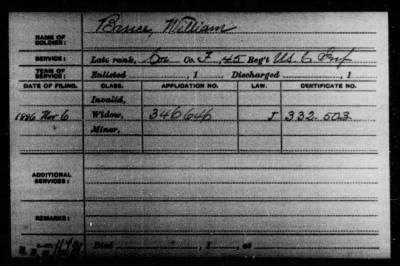 NAME OF SOLDIER: Bruce, William
SERVICE: Late rank, Co. F, 45 Reg't U.S. C Inf
TERM OF SERVICE: Enlisted , 1 . Discharged , 1
DATE OF FILING. CLASS. APPLICATION NO. LAW. CERTIFICATE NO.
Invalid,
1886 Nov 6 Widow, 346646 J 332.503
Minor,
ADDITIONAL SERVICES:
REMARKS:
Died , 1 , at